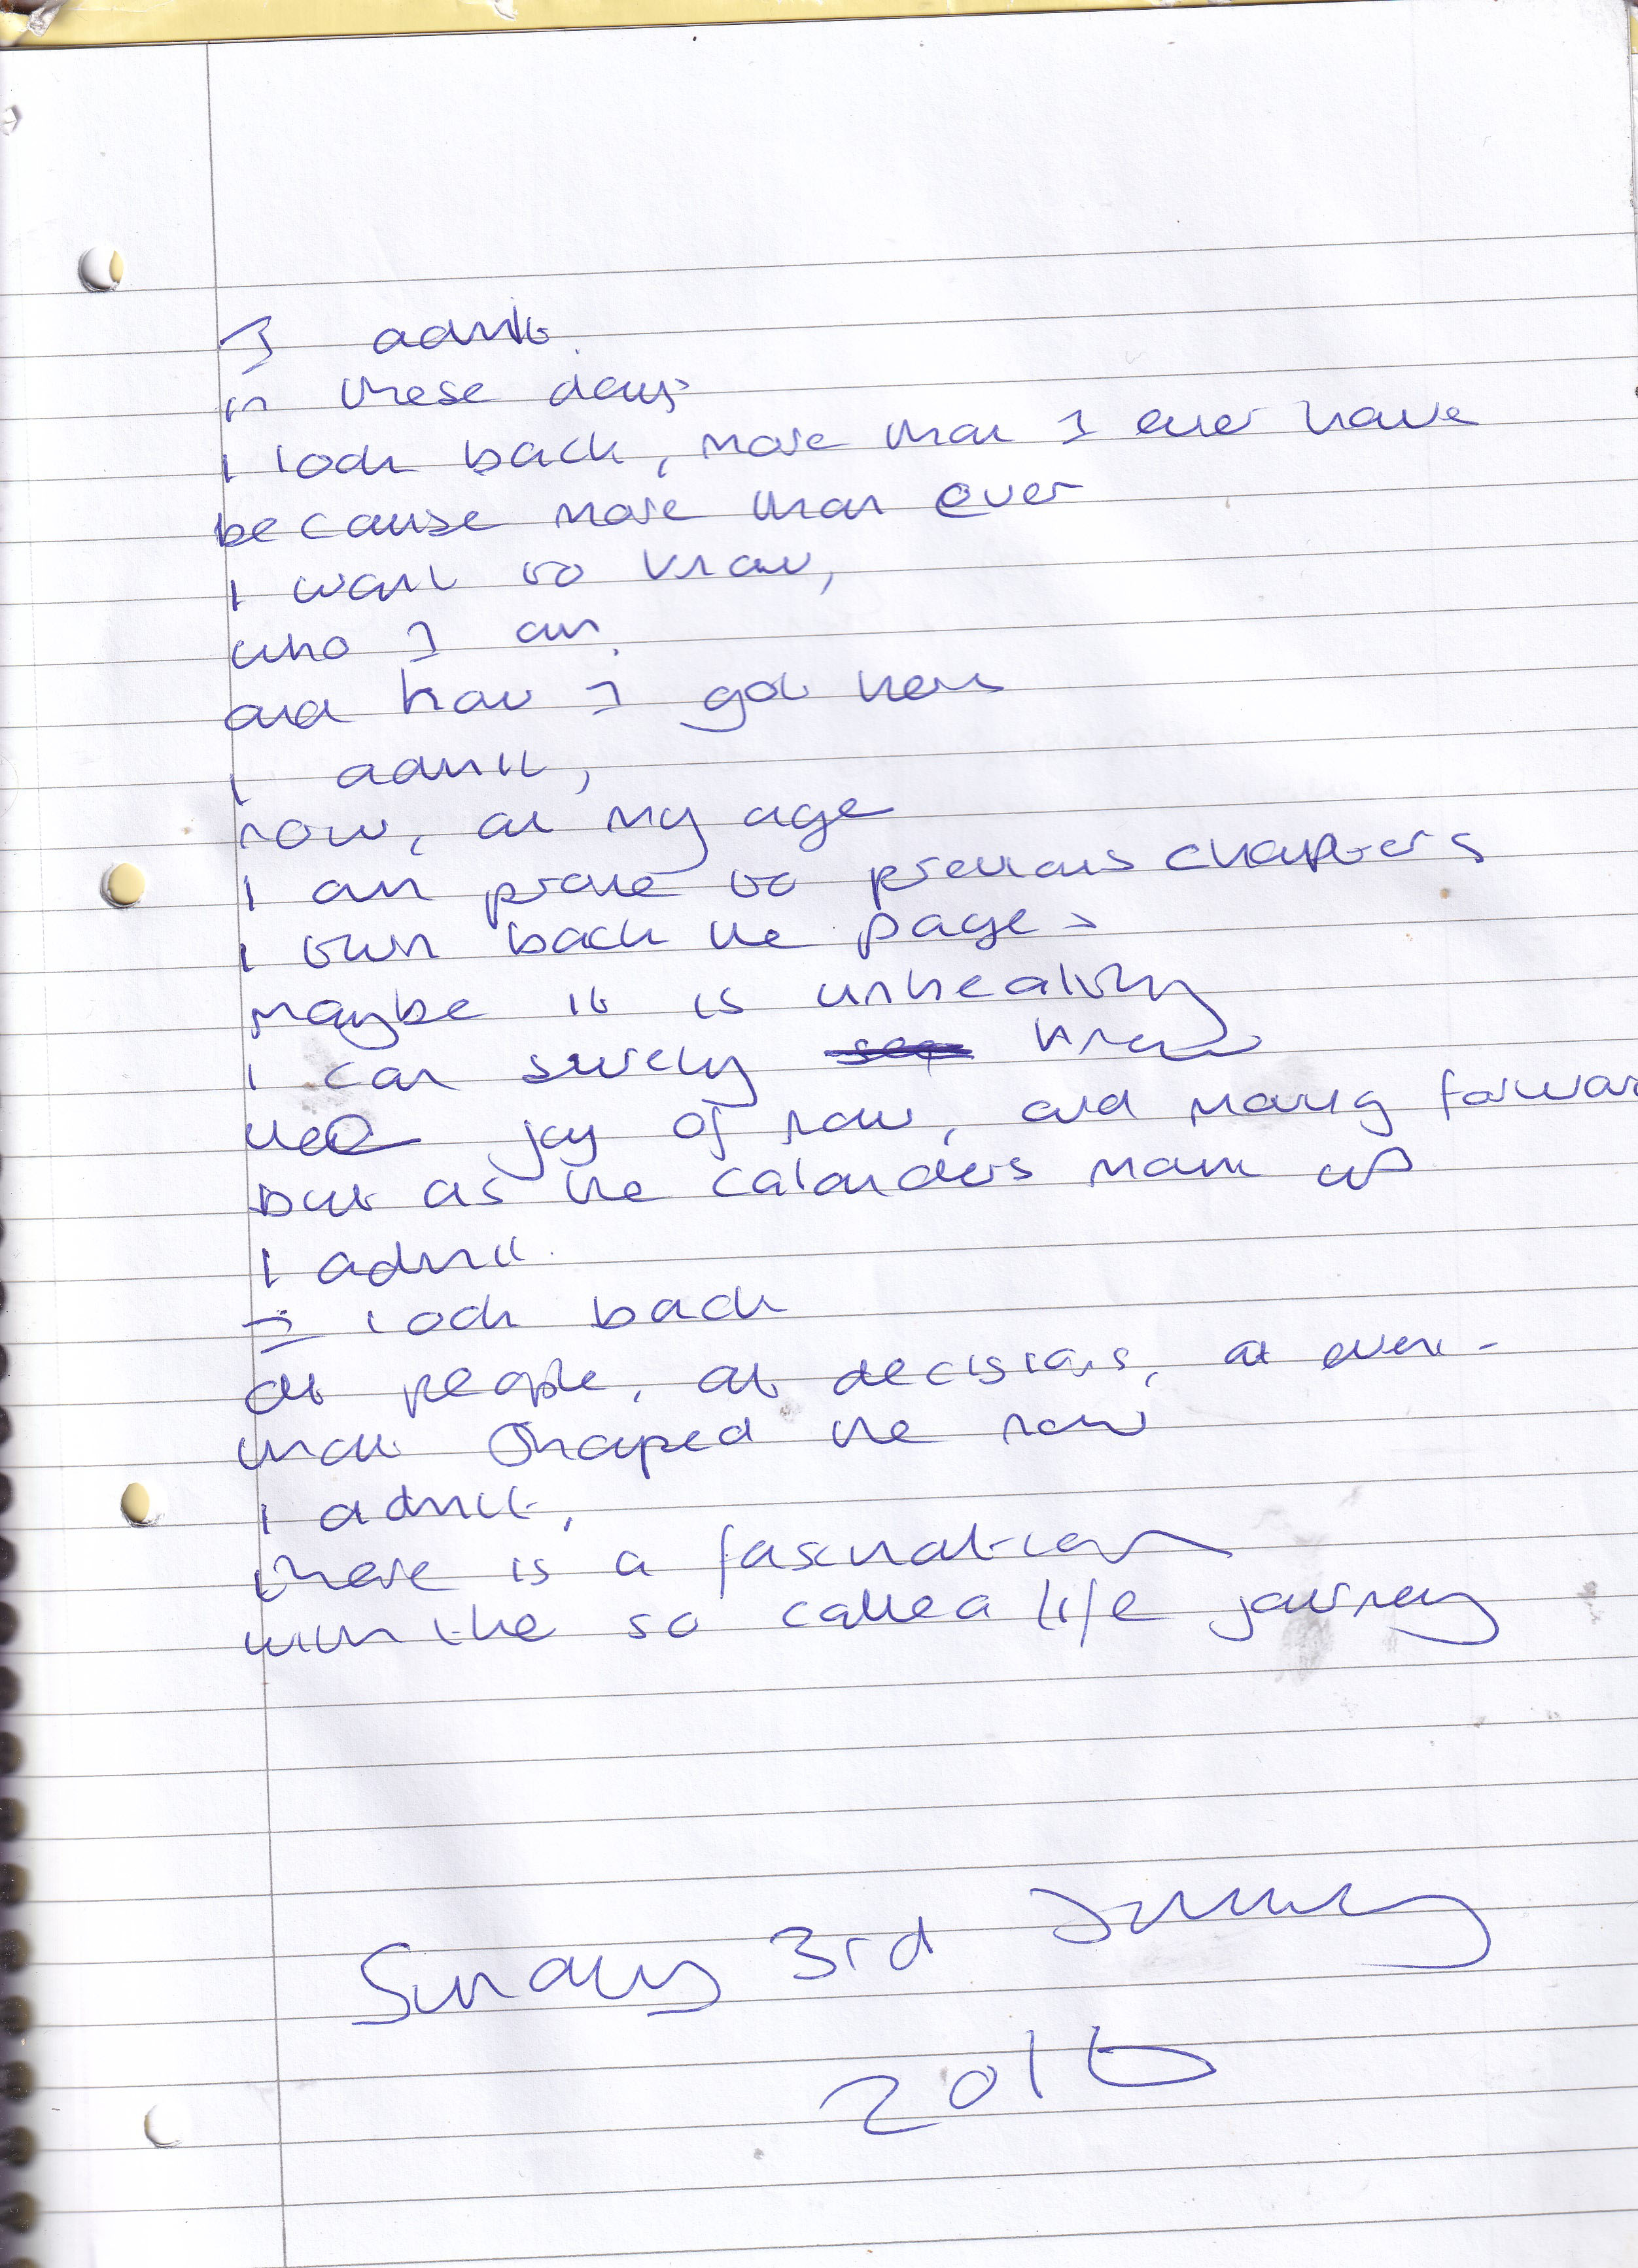 I admit.
in these days
I look back, more than I ever have
because more than ever
I want to know,
who I am.
and how I got here
I admit,
now, at my age
I am prone to previous chapters
I turn back the pages
maybe it is unhealthy
I can surely know
the joy of now, and moving forwar
but as the calanders mount up
I admit.
I look back
at people, at decisions, at
that shaped the now
I admit,
there is a fascination
with the so called life journey
Sunday 3rd January
2016